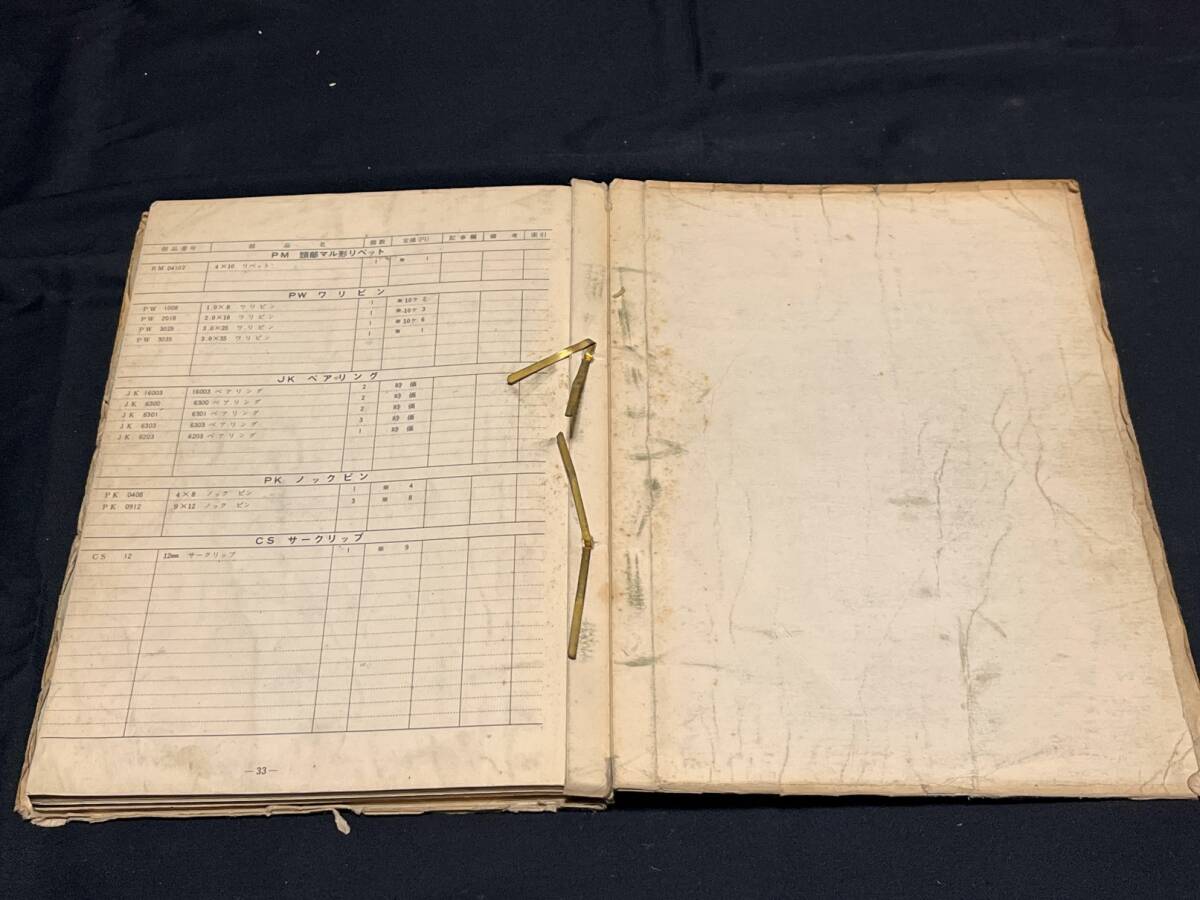 部品番号 部品名 個数 定価(円) 記事欄 備考 索引
PM 頭部マル形リベット
RM 04102 4×10 リベット 1 ※ 1
PW ワリピン
PW 1008 1.0×8 ワリピン 1 ※10ケ 2
PW 2018 2.0×18 ワリピン 1 ※10ケ 3
PW 3025 3.0×25 ワリピン 1 ※10ケ 6
PW 3035 3.0×35 ワリピン 1 ※ 1
JK ベアリング
JK 16003 16003 ベアリング 2 時価
JK 6300 6300 ベアリング 2 時価
JK 6301 6301 ベアリング 2 時価
JK 6303 6303 ベアリング 3 時価
JK 6203 6203 ベアリング 1 時価
PK ノックピン
PK 0408 4×8 ノックピン 1 ※ 4
PK 0912 9×12 ノックピン 3 ※ 8
CS サークリップ
CS 12 12mm サークリップ 1 ※ 9
—33—